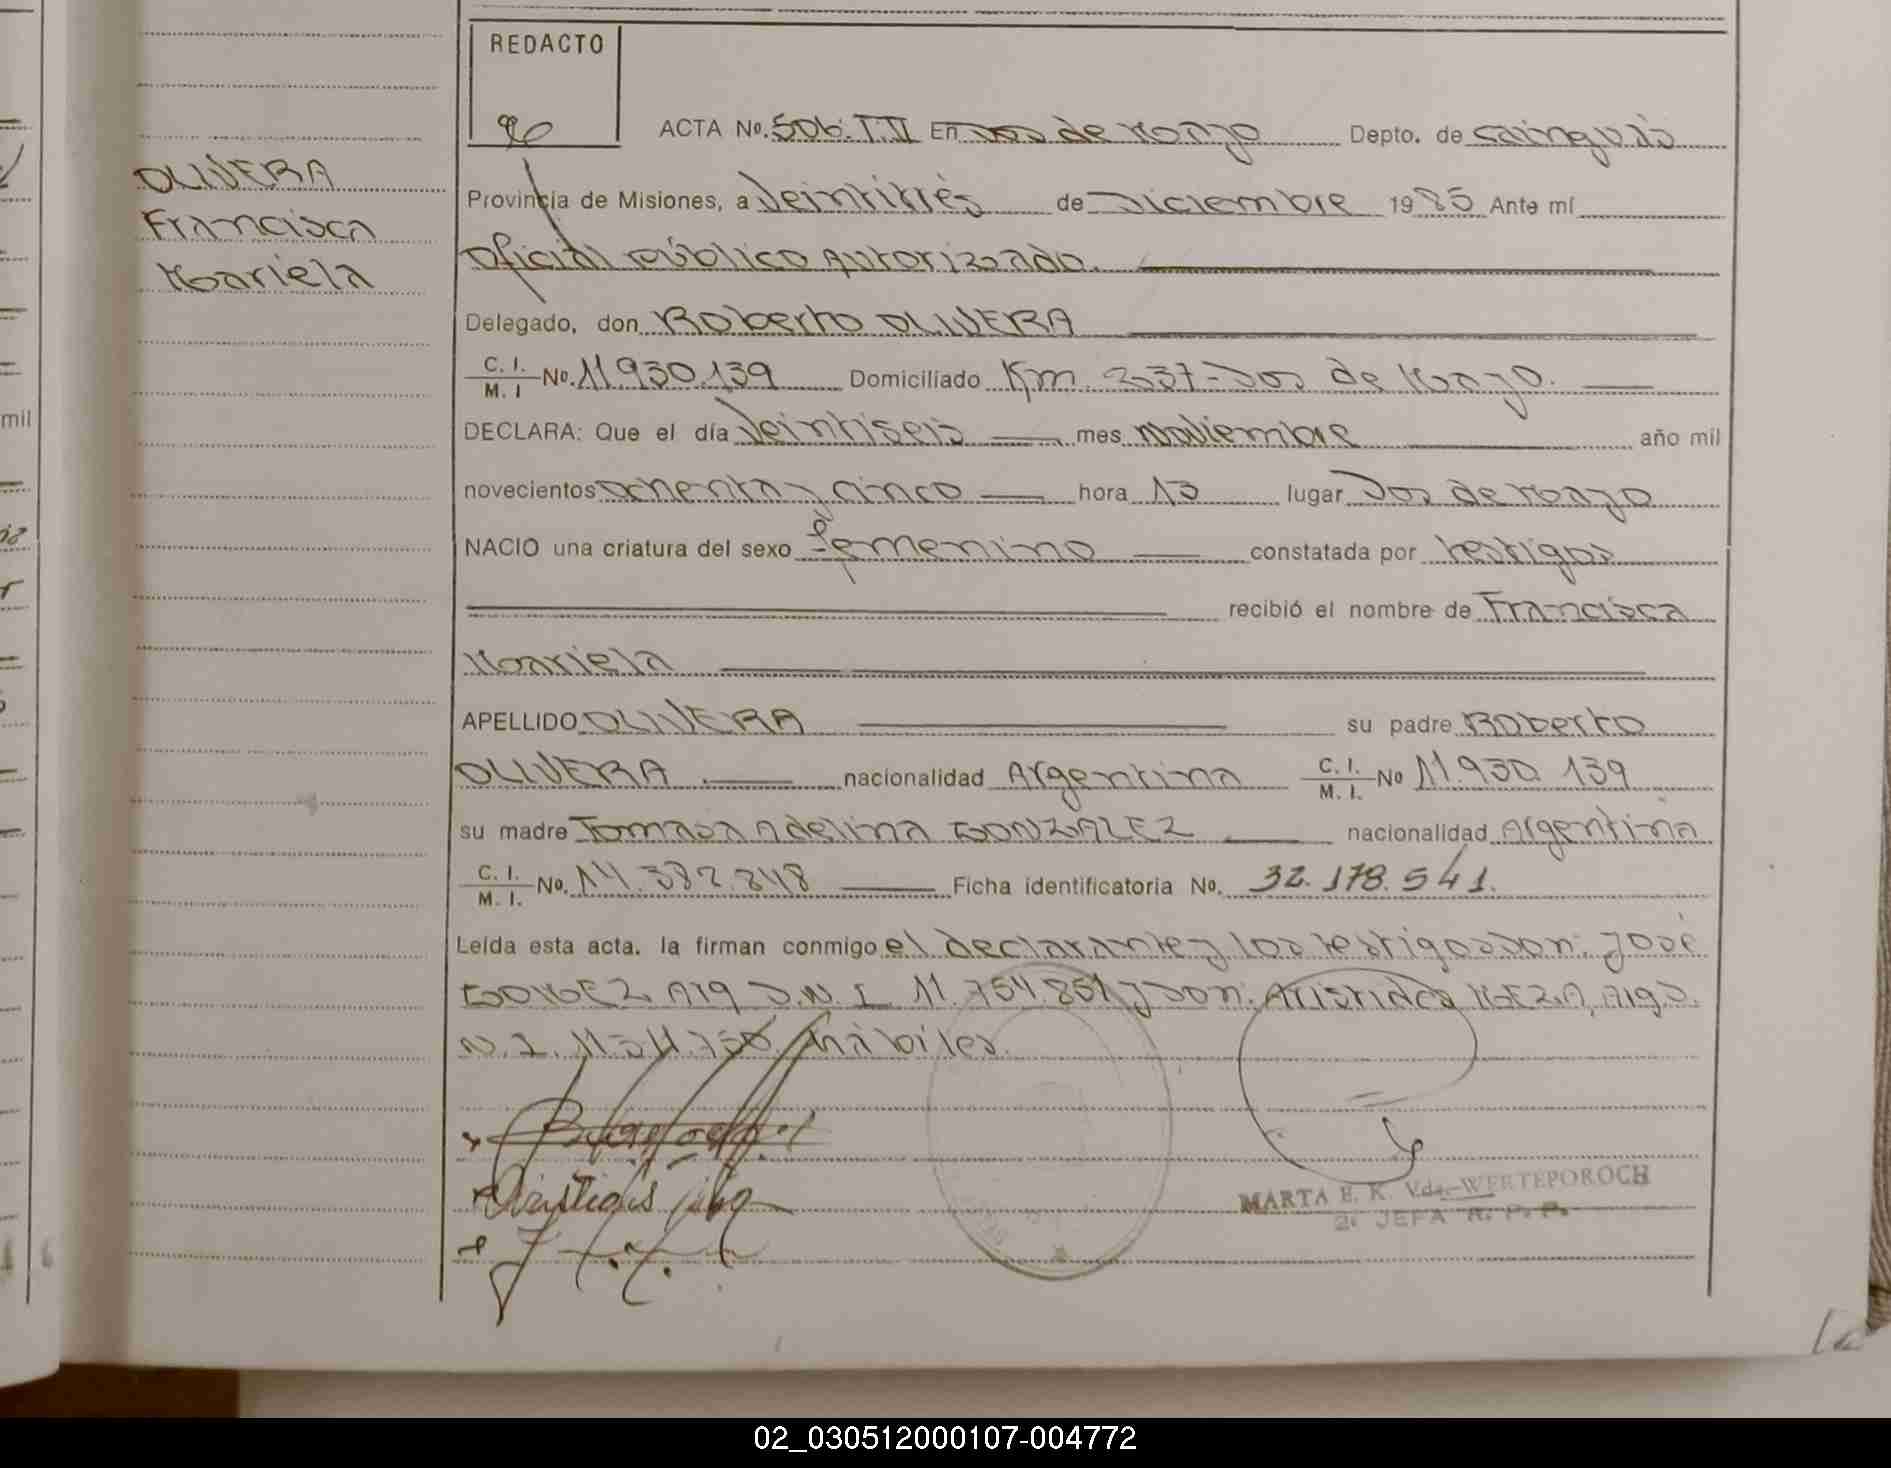 REDACTO
96
ACTA No. 506. T. II En Dos de Mayo Depto. de Cainguás
OLIVERA
Francisca
Mariela
Provincia de Misiones, a Veintitrés de Diciembre 1985 Ante mí
Oficial público Autorizado.
Delegado, don Roberto OLIVERA
C. I.
M. I No. 11.930.139 Domiciliado Km. 237-Dos de Mayo.
DECLARA: Que el día Veintiseis mes Noviembre año mil
novecientos ochenta y cinco hora 13 lugar Dos de Mayo
NACIO una criatura del sexo femenino constatada por testigos
recibió el nombre de Francisca
Mariela
APELLIDO OLIVERA su padre Roberto
OLIVERA nacionalidad Argentina C. I.
M. I. No 11.930.139
su madre Tomasa Adelina GONZALEZ nacionalidad Argentina
C. I.
M. I. No. 14.382.848 Ficha identificatoria No. 32.178.541.
Leída esta acta. la firman conmigo el declarante y los testigos don: José
GOMEZ Arg D.N.I 11.754.851 y don: Aristides MEZA, Arg D.
N.I. hábiles.
MARTA E. K. Vda. WERTEPOROCH
2ª JEFA R. P. P.
mil
02_030512000107-004772